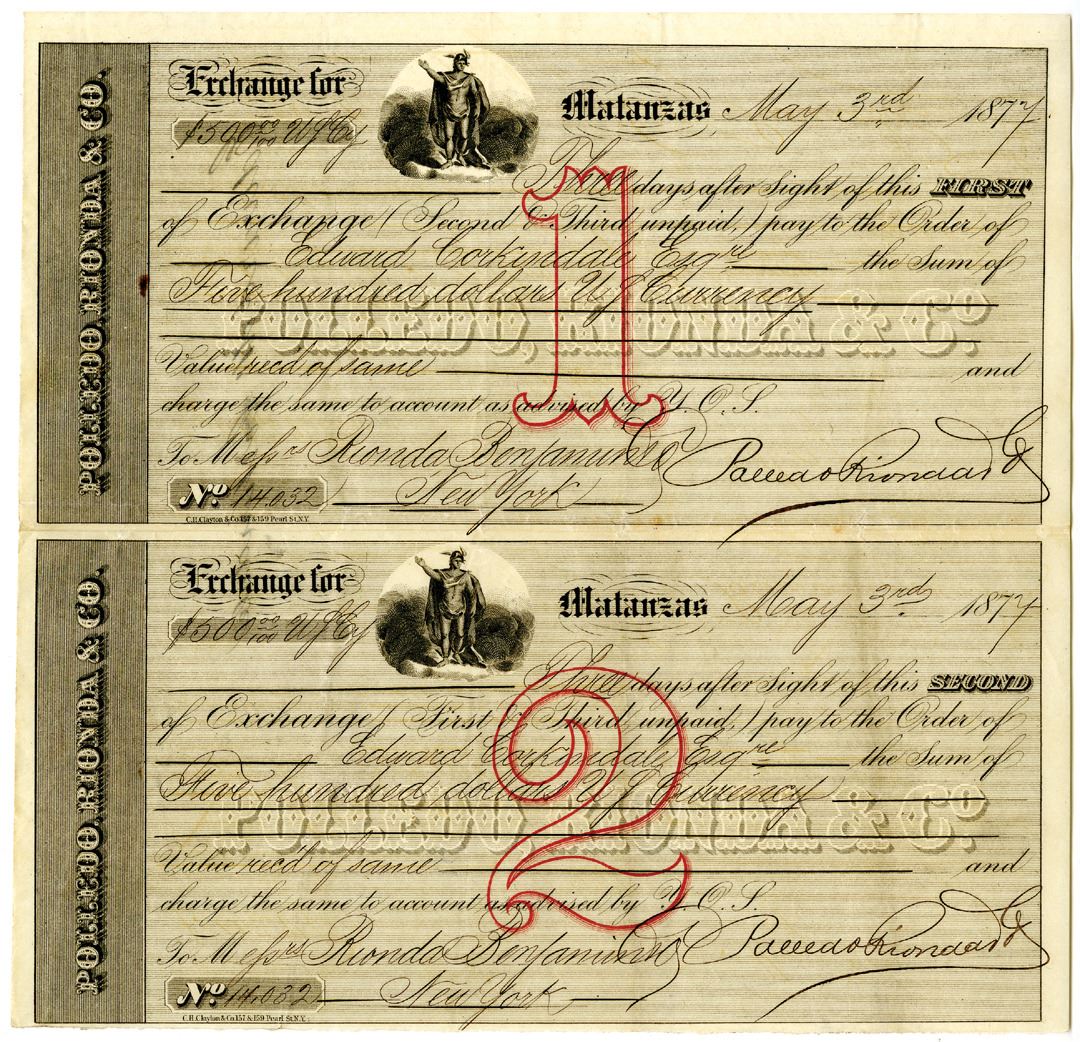 POLLEDO, RIONDA & CO.
Exchange for
$500 00/100 U S Cy
Matanzas May 3rd 1877.
Three days after Sight of this FIRST
of Exchange (Second & Third unpaid,) pay to the Order of
Edward Corkindale Esqre the Sum of
Five hundred dollars U S Currency
POLLEDO, RIONDA & Co.
Value recd of same and
charge the same to account as advised by Y. O. S.
To Messrs Rionda Benjamin & Co
Polledo Rionda & Co
No. 14.032 New York
C.H. Clayton & Co. 157 & 159 Pearl St. N.Y.
POLLEDO, RIONDA & CO.
Exchange for
$500 00/100 U S Cy
Matanzas May 3rd 1877
Three days after Sight of this SECOND
of Exchange (First & Third unpaid,) pay to the Order of
Edward Corkindale Esqre the Sum of
Five hundred dollars U S Currency
POLLEDO, RIONDA & Co.
Value recd of same and
charge the same to account as advised by Y. O. S.
To Messrs Rionda Benjamin & Co
Polledo Rionda & Co
No. 14.032 New York
C.H. Clayton & Co. 157 & 159 Pearl St. N.Y.
1
2